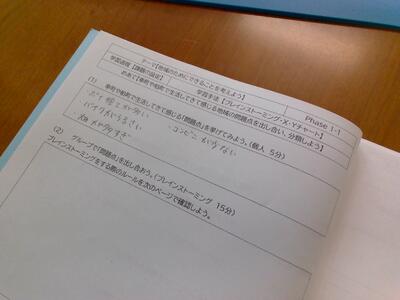 テーマ【地域のためにできることを考えよう】
Phase 1-1
学習過程【課題の設定】
学習手法【ブレインストーミング・X・Yチャート】
めあて【串町や柏町で生活してきて感じる地域の問題点を出し合い、分類しよう】
(1) 串町や柏町で生活してきて感じる「問題点」を挙げてみよう。(個人 5分)
・ポイ捨てが多い ・コンビニが少ない
バイクがうるさい
(2) グループで「問題点」を出し合おう。(ブレインストーミング 15分)
ブレインストーミングをする際のルールを次のページで確認しよう。